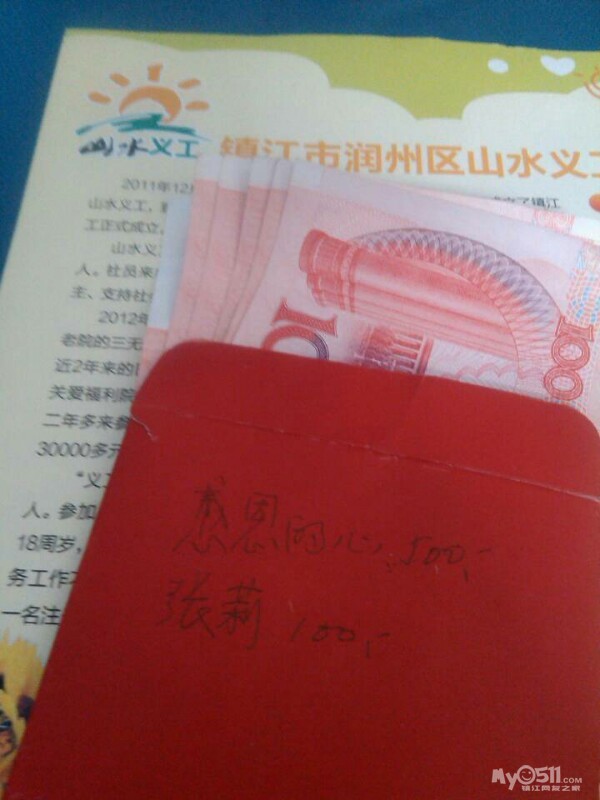 山水义工
镇江市润州区山水义工
2011年12月
成立了镇江
山水义工,
工正式成立,
山水义
人。社员来
主、支持社
2012年
老院的三无
近2年来的
关爱福利院
二年多来
30000多元
"义工
人。参加
18周岁,
务工作
一名注
100
100
感恩的心 500,-
张莉 100,-
My0511.COM
镇江网友之家